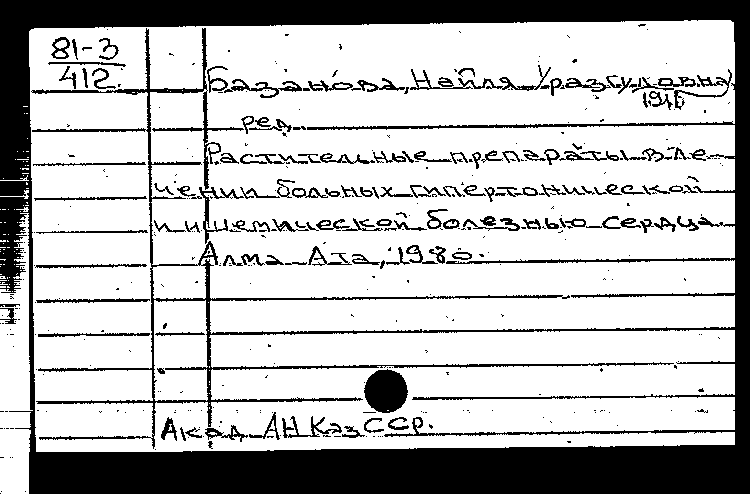 81-3
412.
Базанова, Найля Уразгуловна,
1911
ред.
Растительные препараты в ле-
чении больных гипертонической
и ишемической болезнью сердца.
Алма Ата, 1980.
Акад АН КазССР.